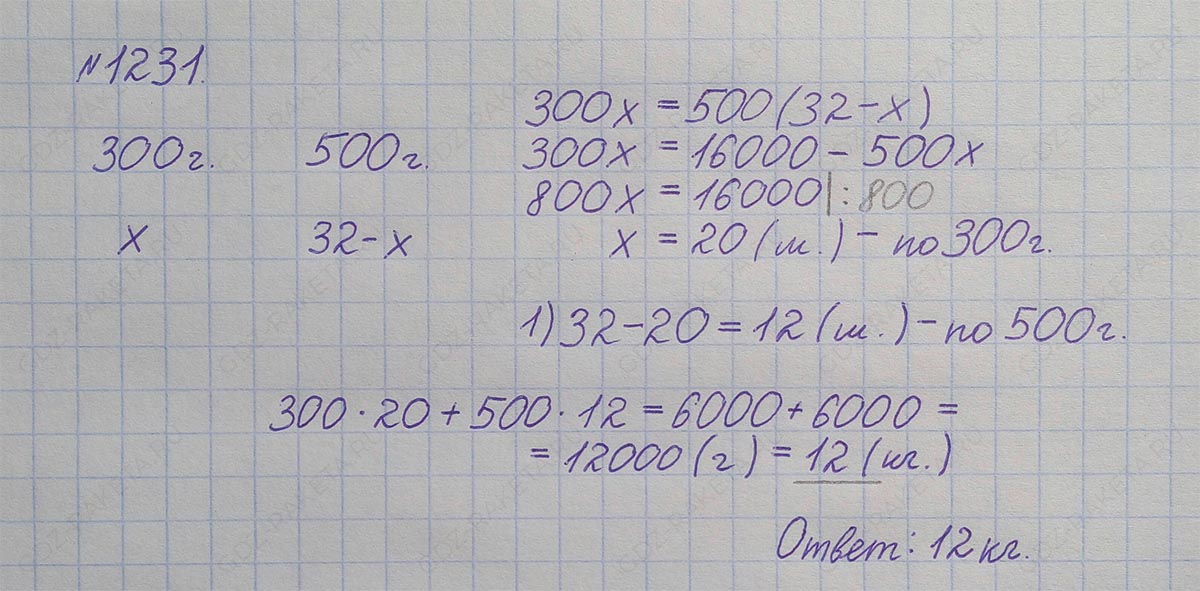 №1231.
300г. 500г.
x 32-x
300x = 500(32-x)
300x = 16000 - 500x
800x = 16000|:800
x = 20 (м.) - по 300г.
1) 32-20 = 12 (м.) - по 500г.
300·20 + 500·12 = 6000 + 6000 =
= 12000 (г) = 12 (кг.)
Ответ: 12 кг.
GDZ-RAKETA.RU